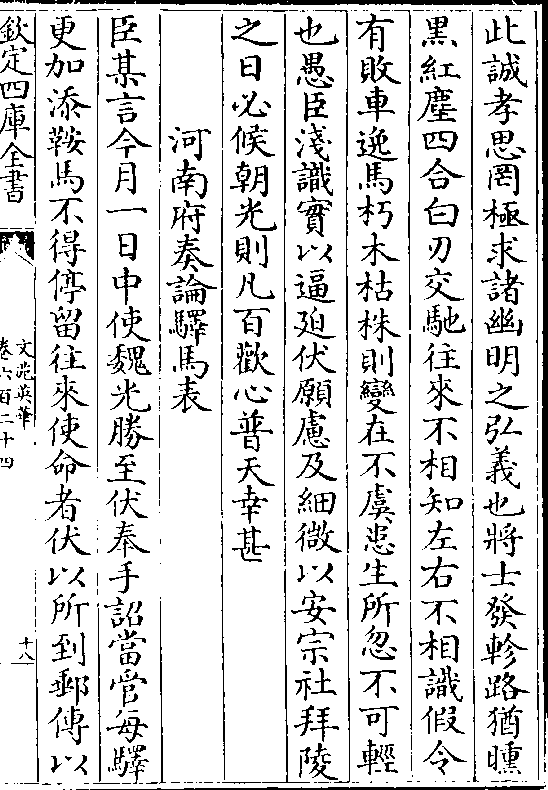 此誠孝思罔極求諸幽明之弘義也將士發軫路猶曛
黒紅塵四合白刃交馳往來不相知左右不相識假令
有敗車逸馬朽木枯株則變在不虞患生所忽不可輕
也愚臣淺識實以逼廹伏願慮及細微以安宗社拜陵
之日必候朝光則凡百歡心普天幸甚
河南府奏論驛馬表
臣某言今月一日中使魏光勝至伏奉手詔當管每驛
更加添鞍馬不得停留往來使命者伏以所到郵傳以
欽定四庫全書
文苑英華
卷六百二十四
十八